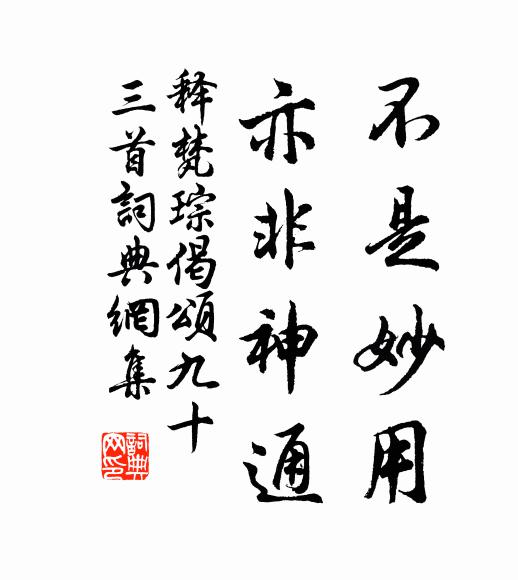 不是妙用
亦非神通
释梵琮偈頌九十
三首詞典網集
詞典
网印